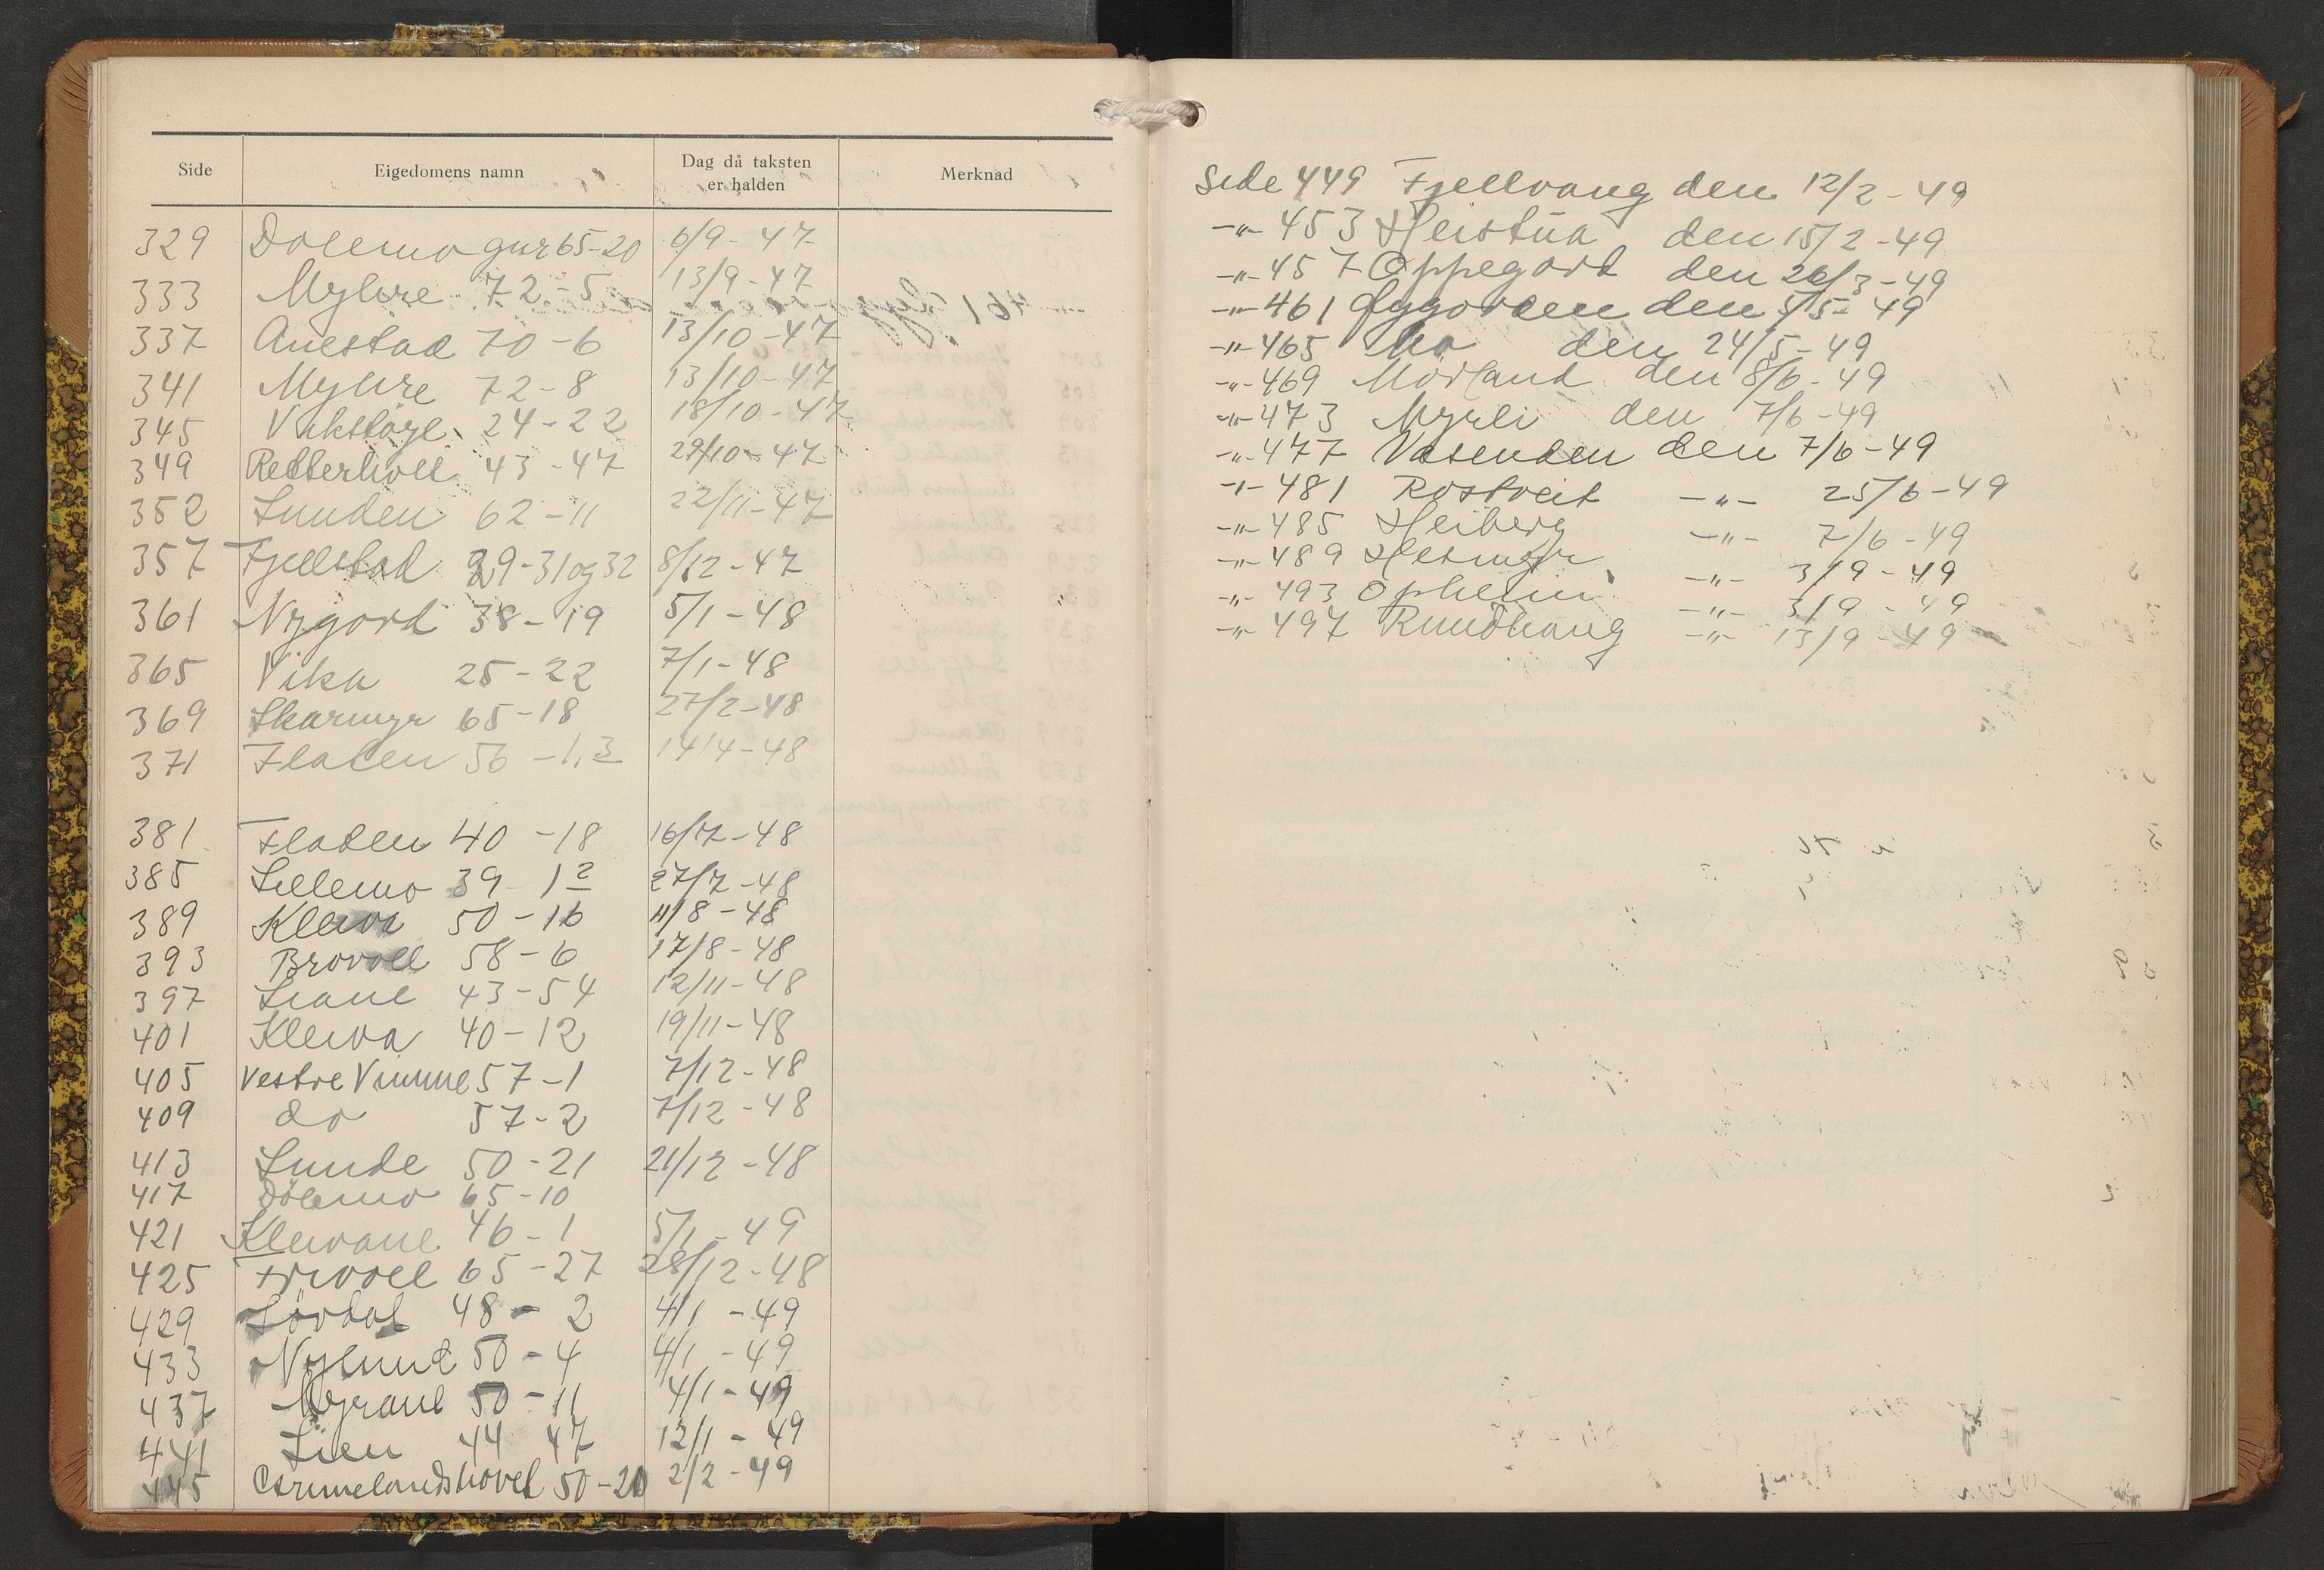 Side Eigedomens namn Dag då taksten er halden Merknad
329 Dölemo gnr 65-20 6/9-47
333 Myhre 72-5 13/9-47
337 Anestad 70-6 13/10-47
341 Myhre 72-8 13/10-47
345 Vikstöyl 24-22 18/10-47
349 Retterholt 43-47 29/10-47
352 Lunden 62-11 22/11-47
357 Fjellstad 29-31 og 32 8/12-47
361 Nygord 38-19 5/1-48
365 Vika 25-22 7/1-48
369 Skarmyr 65-18 27/2-48
371 Flaten 56-1,3 14/4-48
381 Fladen 40-18 16/7-48
385 Lillemo 39 12 27/7-48
389 Kleiva 50-16 11/8-48
393 Brovoll 58-6 17/8-48
397 Liane 43-54 12/11-48
401 Kleiva 40-12 19/11-48
405 Vestre Vimme 57-1 7/12-48
409 do 57-2 7/12-48
413 Lunde 50-21 21/12-48
417 Dölemo 65-10
421 Kleivane 46-1 5/1-49
425 Trivoll 65-27 28/12-48
429 Lördal 48-2 4/1-49
433 Nylund 50-4 4/1-49
437 Myrane 50-11 4/1-49
441 Lien 44 47 12/1-49
445 50-20 2/2-49
Side 449 Fjellvang den 12/2-49
-"- 453 Heistua den 15/2-49
-"- 457 Oppegord den 26/3-49
-"- 461 Lygorden den 5/5-49
-"- 465 Mo den 24/5-49
-"- 469 Mörland den 8/6-49
-"- 473 Myrli den 7/6-49
-"- 477 Vasenden den 7/6-49
-"- 481 Rostveit -"- 25/6-49
-"- 485 Heiberg -"- 7/6-49
-"- 489 Hesmyr -"- 3/9-49
-"- 493 Opheim -"- 3/9-49
-"- 497 Rundhaug -"- 13/9-49